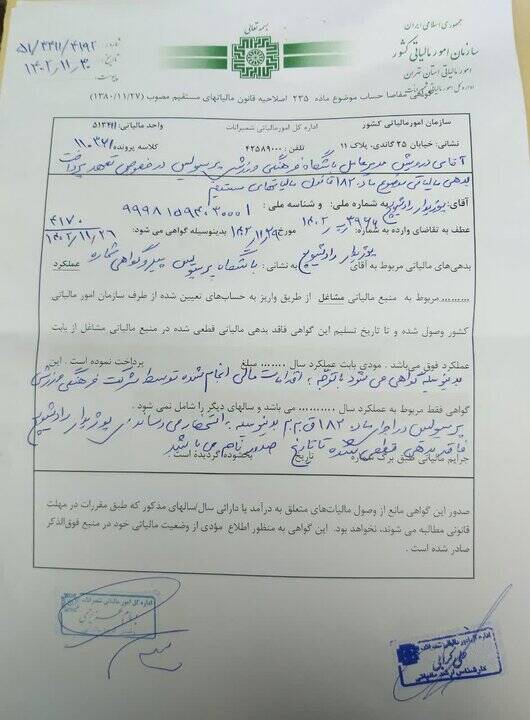 بسمه تعالی
جمهوری اسلامی ایران
سازمان امور مالیاتی کشور
امور مالیاتی استان تهران
اداره کل امور مالیاتی شمیرانات
شماره: ۵۱/۴۴۱۱/۴۱۹۲
تاریخ: ۱۴۰۲/۱۱/۳۰
پیوست
گواهی مفاصا حساب موضوع ماده ۲۳۵ اصلاحیه قانون مالیاتهای مستقیم مصوب (۱۳۸۰/۱۱/۲۷)
سازمان امور مالیاتی کشور اداره کل امور مالیاتی شمیرانات واحد مالیاتی:
نشانی: خیابان ۲۵ گاندی، پلاک ۱۱ تلفن: ۴۲۵۸۹۰۰۰ کلاسه پرونده:
آقای درویش مدیرعامل باشگاه فرهنگی ورزشی پرسپولیس در خصوص تعهد پرداخت
بدهی مالیاتی موضوع ماده ۱۸۲ قانون مالیاتهای مستقیم
آقای: بوژیدار رادشویچ به شماره ملی: و شناسه ملی:
عطف به تقاضای وارده به شماره: مورخ ۱۴۰۲/۱۱/۲۹ بدینوسیله گواهی می شود: ۴۱۷۰ ۱۴۰۲/۱۱/۲۶
بدهی‌های مالیاتی مربوط به آقای بوژیدار رادشویچ به نشانی: باشگاه پرسپولیس پیرو گواهی شماره عملکرد
......... مربوط به منبع مالیاتی مشاغل از طریق واریز به حساب‌های تعیین شده از طرف سازمان امور مالیاتی
کشور وصول شده و تا تاریخ تسلیم این گواهی فاقد بدهی مالیاتی قطعی شده در منبع مالیاتی مشاغل از بابت
عملکرد فوق می‌باشد . مودی بابت عملکرد سال ........ مبلغ پرداخت نموده است . این
بدینوسیله گواهی می شود با توجه به اقدامات مالی انجام شده توسط شرکت فرهنگی ورزشی
گواهی فقط مربوط به عملکرد سال .......... می باشد و سالهای دیگر را شامل نمی شود .
پرسپولیس در اجرای ماده ۱۸۲ ق.م.م بدینوسیله به استحضار می رساند آقای بوژیدار رادشویچ
فاقد بدهی قطعی شده تا تاریخ صدور نامه می باشد
جرایم مالیاتی طبق برگ شماره تاریخ بخشوده گردیده است .
صدور این گواهی مانع از وصول مالیات‌های متعلق به درآمد یا دارائی سال/سالهای مذکور که طبق مقررات در مهلت
قانونی مطالبه می شوند، نخواهد بود. این گواهی به منظور اطلاع مؤدی از وضعیت مالیاتی خود در منبع فوق‌الذکر
صادر شده است .
اداره کل امور مالیاتی شمیرانات
اداره کل امور مالیاتی شمیرانات